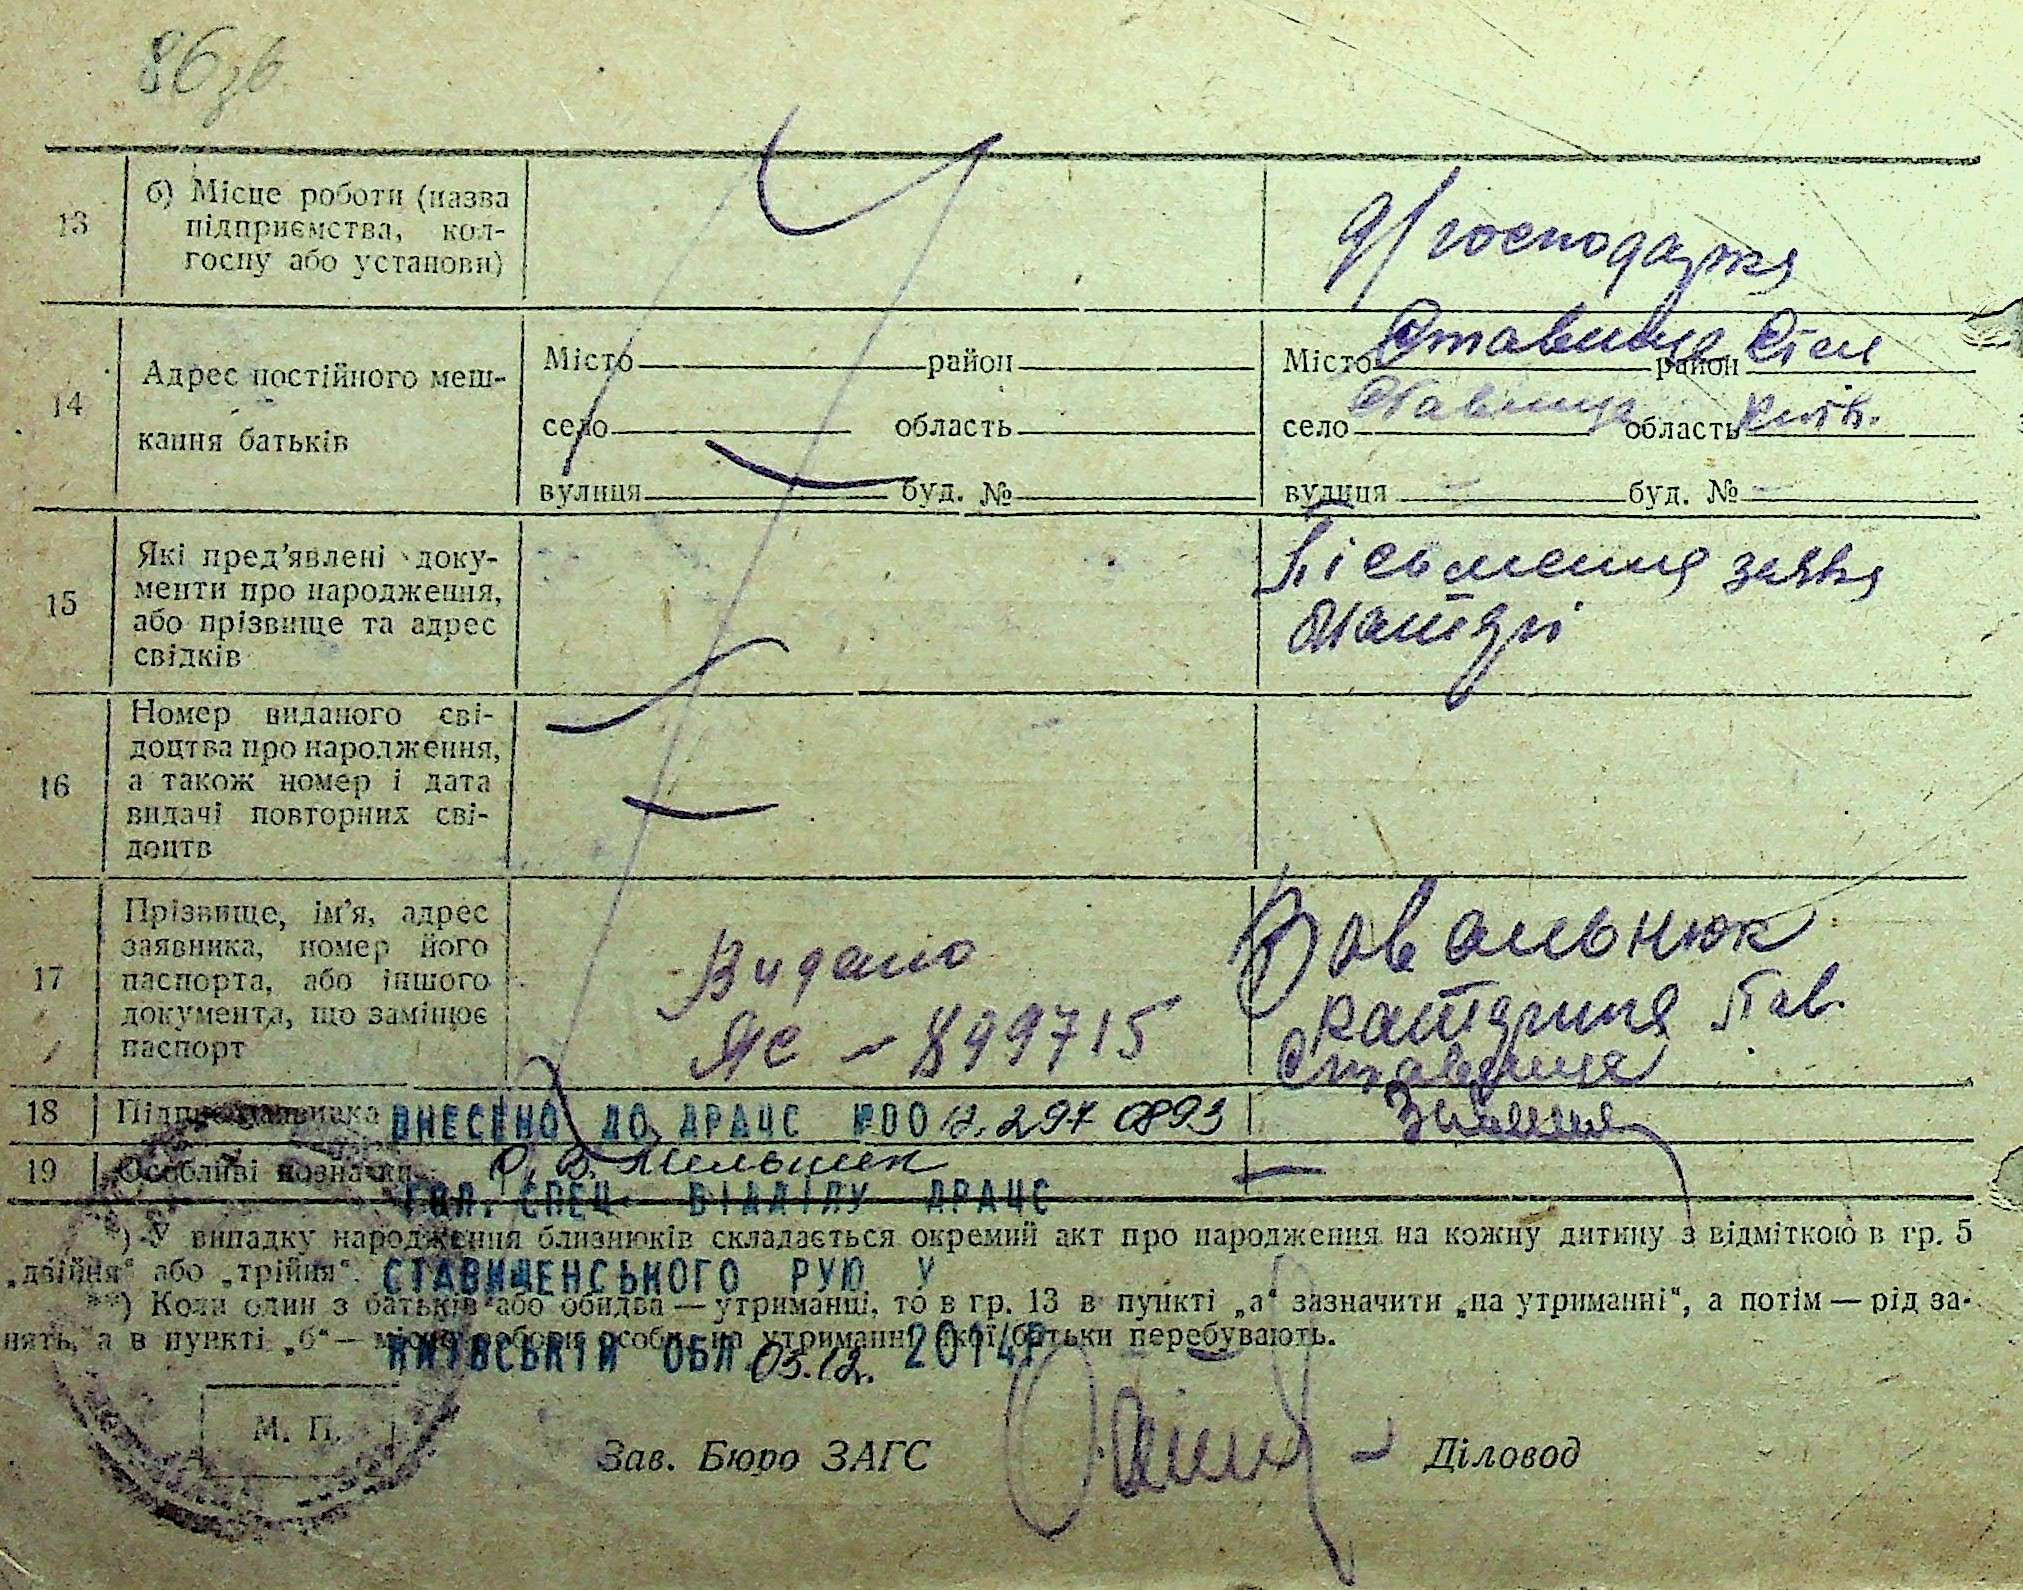 86зв
13
б) Місце роботи (назва
підприємства, кол-
госпу або установи)
д/господарка
14
Адрес постійного меш-
кання батьків
Місто район
село область
вулиця буд. №
Місто Ставища район Став
село Ставища область Київ.
вулиця — буд. № —
15
Які пред'явлені доку-
менти про народження,
або прізвище та адрес
свідків
Письменна заява
Матері
16
Номер виданого сві-
доцтва про народження,
а також номер і дата
видачі повторних сві-
доцтв
17
Прізвище, ім'я, адрес
заявника, номер його
паспорта, або іншого
документа, що заміщює
паспорт
Видано
ЯС – 899715
Ковальнюк
Катерина Пав.
Ставища
18
Підпис заявника
ВНЕСЕНО ДО ДРАЦС №00 12.297 0893
19
Особливі позначки
ГОЛ. СПЕЦ ВІДДІЛУ ДРАЦС
*) У випадку народження близнюків складається окремий акт про народження на кожну дитину з відміткою в гр. 5
„двійня“ або „трійня“.
СТАВИЩЕНСЬКОГО РУЮ У
**) Коли один з батьків або обидва — утриманці, то в гр. 13 в пункті „а“ зазначити „на утриманні“, а потім — рід за-
нять, а в пункті „б“ — місце роботи особи, на утриманні якої батьки перебувають.
КИЇВСЬКІЙ ОБЛ 03.12. 2014Р
М. П.
Зав. Бюро ЗАГС
Діловод